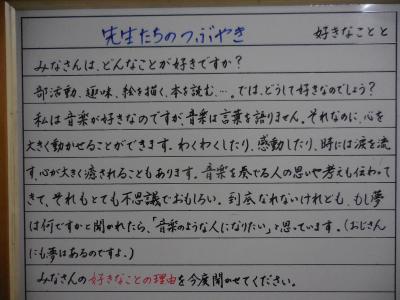 先生たちのつぶやき　好きなことと
みなさんは、どんなことが好きですか？
部活動、趣味、絵を描く、本を読む、…。では、どうして好きなのでしょう？
私は音楽が好きなのですが音楽は言葉を語りません。それなのに、心を
大きく動かせることができます。わくわくしたり、感動したり、時には涙を流
す、心が大きく癒されることもあります。音楽を奏でる人の思いや考えも伝わっ
てきて、それもとても不思議でおもしろい。到底なれないけれども、もし夢
は何ですかと聞かれたら、「音楽のような人になりたい」と思っています。（おじさん
にも夢はあるのですよ。）
みなさんの好きなことの理由を今度聞かせてください。